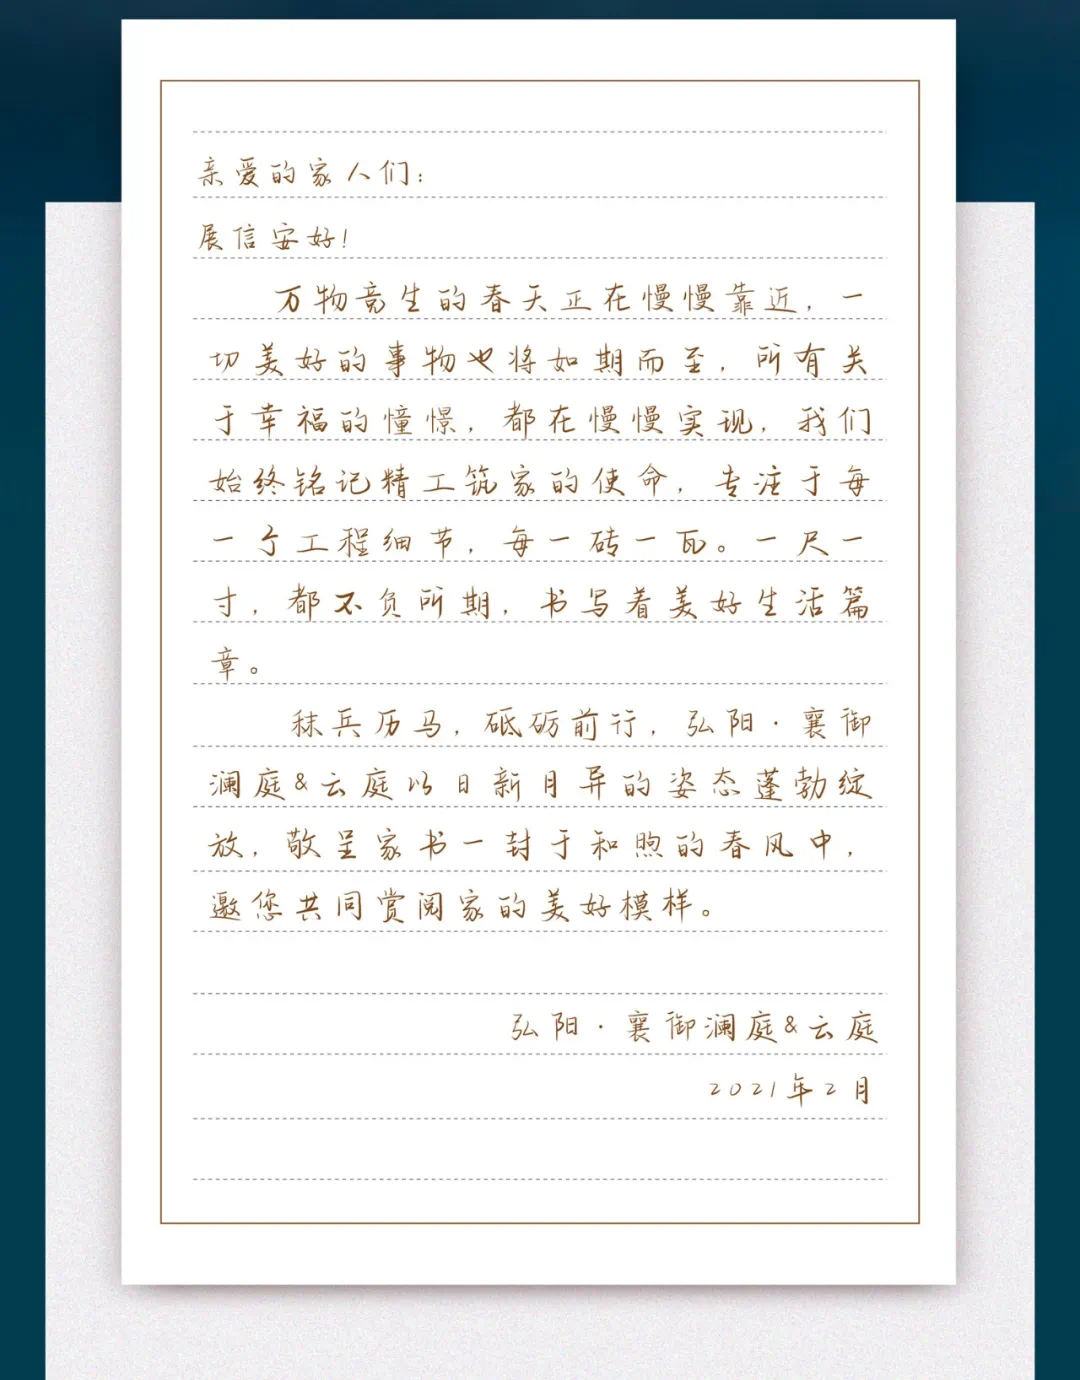 亲爱的家人们：
展信安好！
万物竞生的春天正在慢慢靠近，一
切美好的事物也将如期而至，所有关
于幸福的憧憬，都在慢慢实现，我们
始终铭记精工筑家的使命，专注于每
一个工程细节，每一砖一瓦。一尺一
寸，都不负所期，书写着美好生活篇
章。
秣兵历马，砥砺前行，弘阳·襄御
澜庭&云庭以日新月异的姿态蓬勃绽
放，敬呈家书一封于和煦的春风中，
邀您共同赏阅家的美好模样。
弘阳·襄御澜庭&云庭
2021年2月